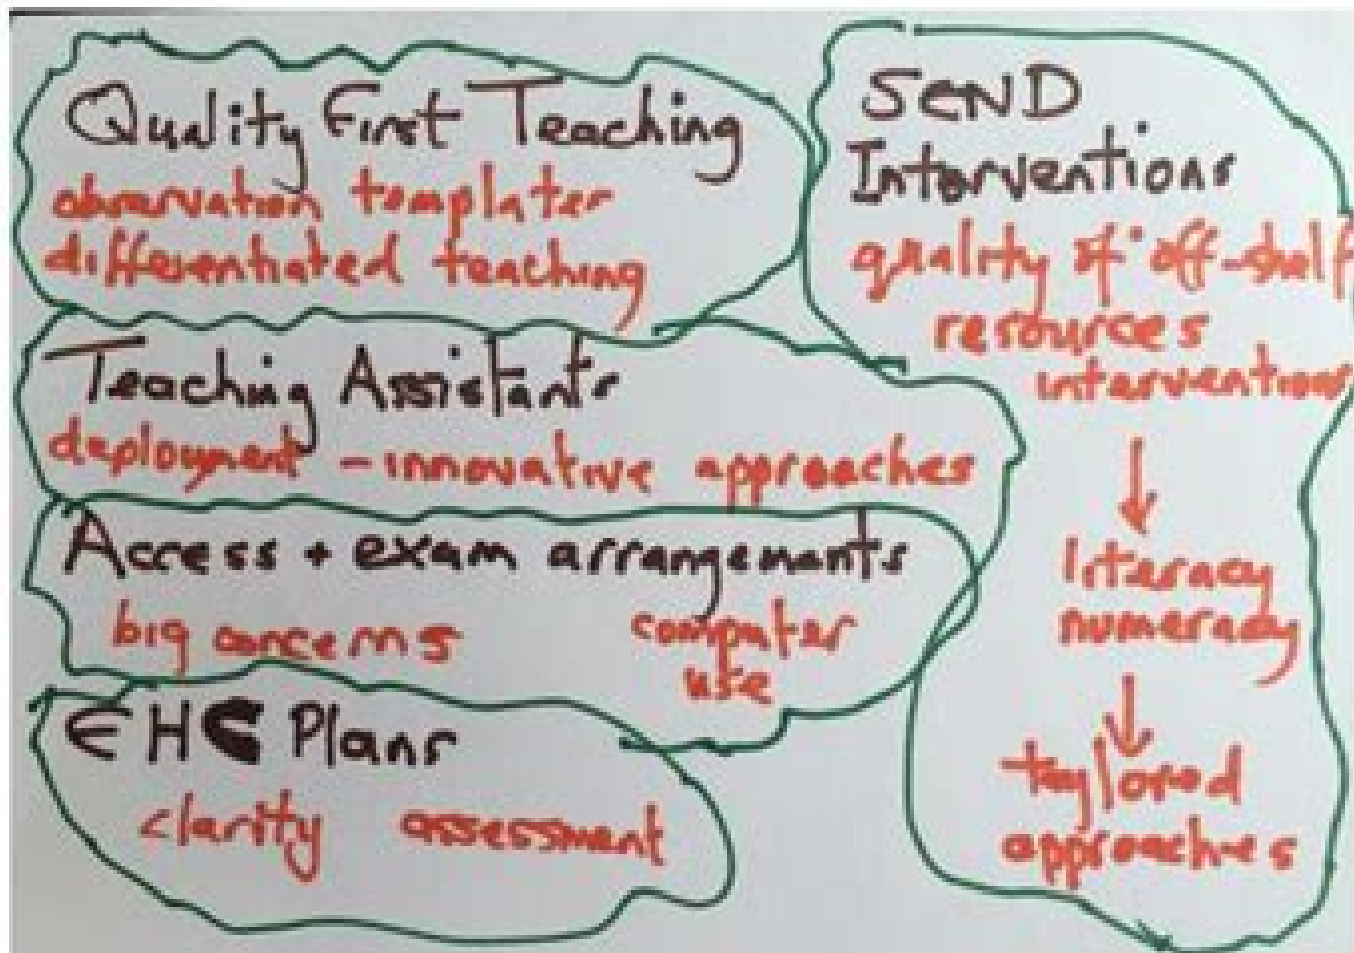 Quality First Teaching
observation templates
differentiated teaching
Teaching Assistants
deployment - innovative approaches
Access + exam arrangements
big concerns computer
use
EHC Plans
clarity assessment
SEND
Interventions
quality of off-shelf
resources
interventions
↓
literacy
numeracy
↓
taylored
approaches